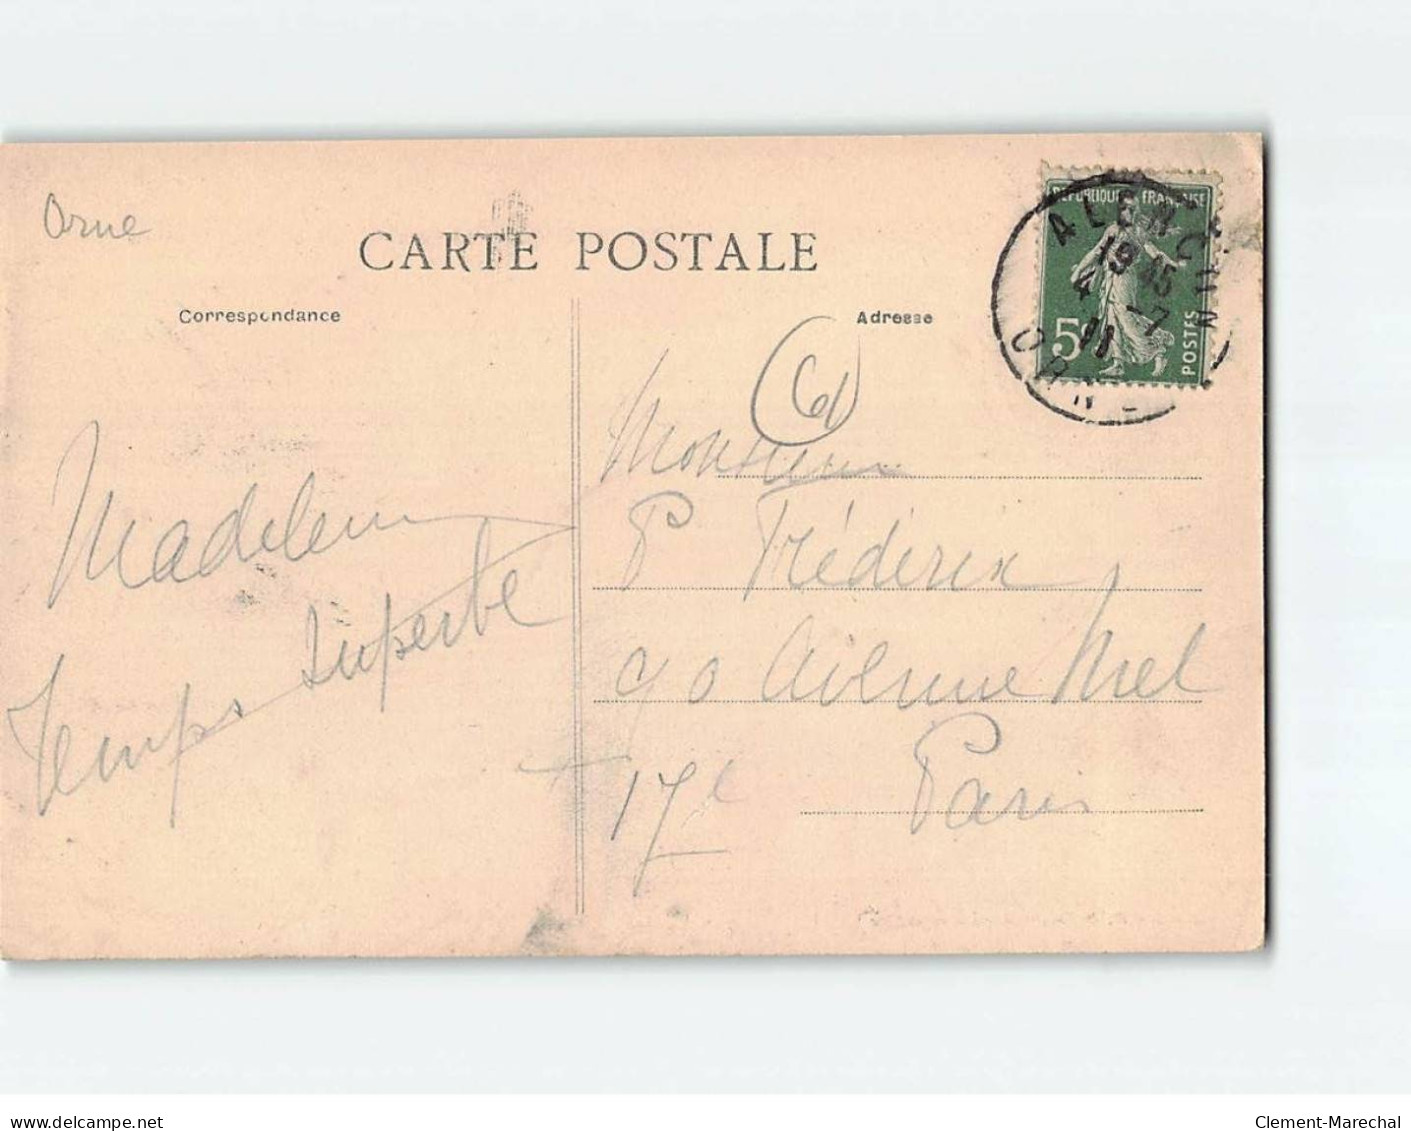 Orne
CARTE POSTALE
Correspondance
Adresse
REPUBLIQUE FRANÇAISE
5
POSTES
ALENÇON
19 45
4 7
11
ORNE
61
Monsieur
P Frédérix
90 Avenue Niel
17e Paris
Madeleine
Temps superbe
www.delcampe.net
Clement-Marechal